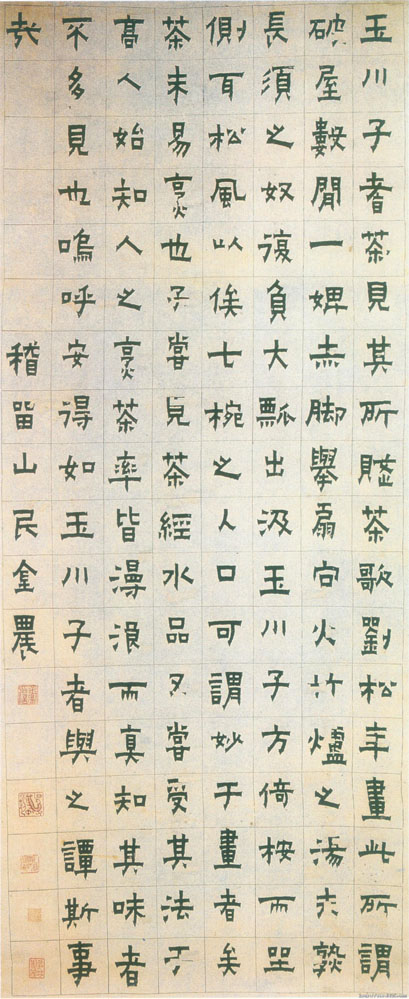 玉川子耆茶見其所賦茶歌劉松年畫此所謂
破屋數閒一婢赤脚舉扇向火竹爐之湯未熟
長須之奴復負大瓢出汲玉川子方倚桉而坐
側耳松風以俟七椀之入口可謂妙于畫者矣
茶未易烹也予嘗見茶經水品又嘗受其法于
高人始知人之烹茶率皆漫浪而真知其味者
不多見也嗚呼安得如玉川子者與之譚斯事
哉 稽留山民金農